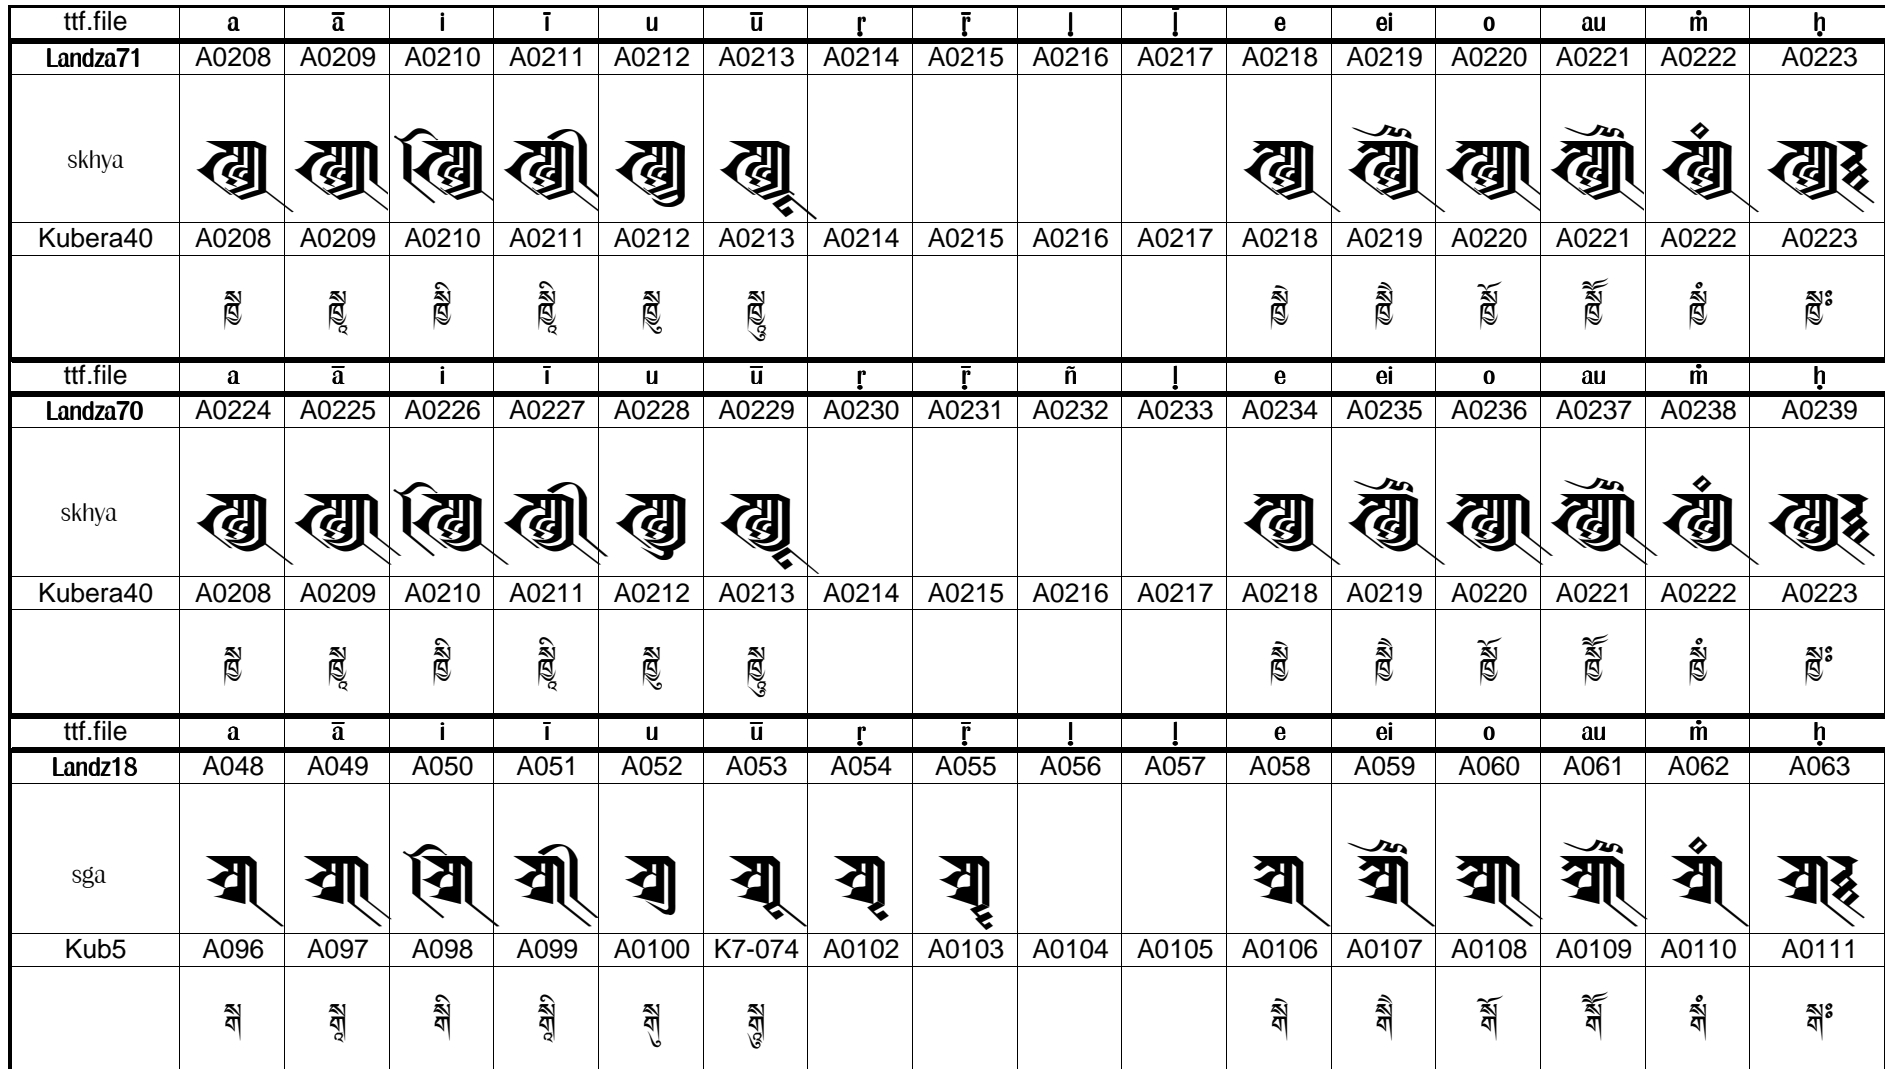 ttf.file a ā i ī u ū ṛ ṝ ḷ ḹ e ei o au ṁ ḥ
Landza71 A0208 A0209 A0210 A0211 A0212 A0213 A0214 A0215 A0216 A0217 A0218 A0219 A0220 A0221 A0222 A0223
skhya
Kubera40 A0208 A0209 A0210 A0211 A0212 A0213 A0214 A0215 A0216 A0217 A0218 A0219 A0220 A0221 A0222 A0223
སྑྱ སྑྱཱ སྑྱི སྑྱཱི སྑྱུ སྑྱཱུ སྑྱེ སྑྱཻ སྑྱོ སྑྱཽ སྑྱཾ སྑྱཿ
ttf.file a ā i ī u ū ṛ ṝ ñ ḷ e ei o au ṁ ḥ
Landza70 A0224 A0225 A0226 A0227 A0228 A0229 A0230 A0231 A0232 A0233 A0234 A0235 A0236 A0237 A0238 A0239
skhya
Kubera40 A0208 A0209 A0210 A0211 A0212 A0213 A0214 A0215 A0216 A0217 A0218 A0219 A0220 A0221 A0222 A0223
སྑྱ སྑྱཱ སྑྱི སྑྱཱི སྑྱུ སྑྱཱུ སྑྱེ སྑྱཻ སྑྱོ སྑྱཽ སྑྱཾ སྑྱཿ
ttf.file a ā i ī u ū ṛ ṝ ḷ ḷ e ei o au ṁ ḥ
Landz18 A048 A049 A050 A051 A052 A053 A054 A055 A056 A057 A058 A059 A060 A061 A062 A063
sga
Kub5 A096 A097 A098 A099 A0100 K7-074 A0102 A0103 A0104 A0105 A0106 A0107 A0108 A0109 A0110 A0111
སྒ སྒཱ སྒི སྒཱི སྒུ སྒཱུ སྒེ སྒཻ སྒོ སྒཽ སྒཾ སྒཿ